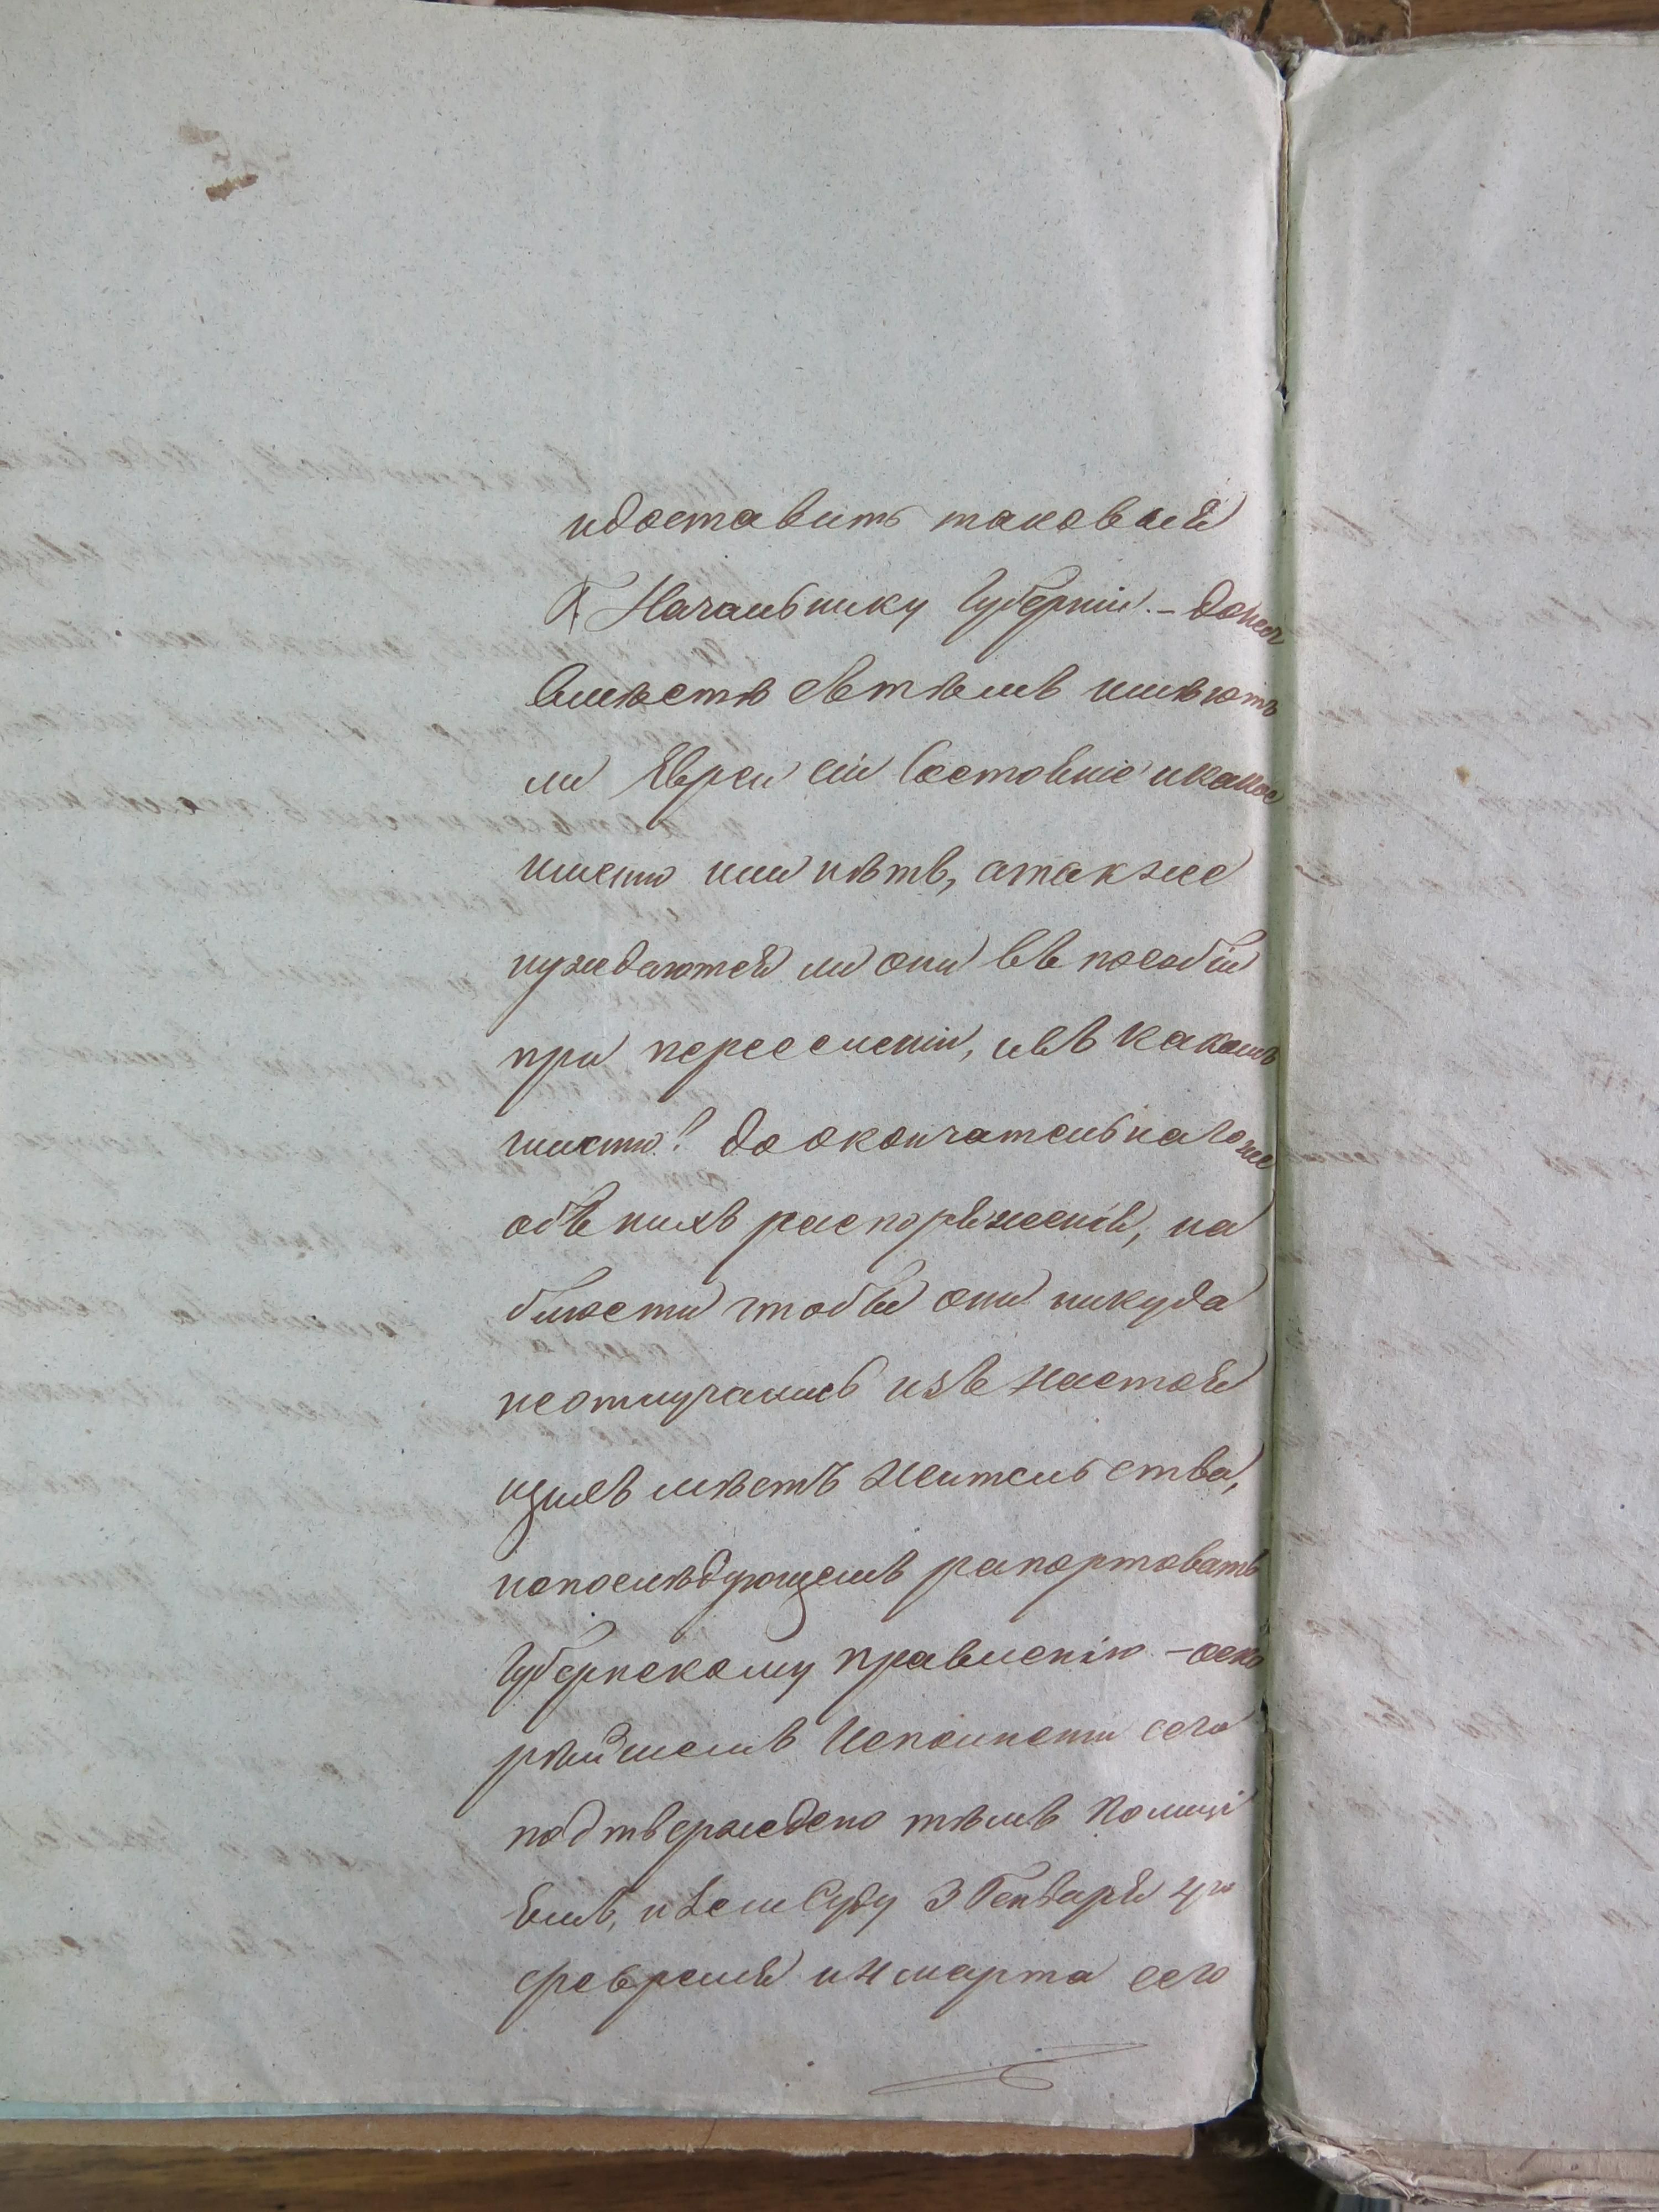 идоставить таковыя
К Начальнику Губернiи. – донеся
вмѣстѣ съ тѣмъ имѣютъ
ли Евреи сiи Состоянiе и какое
имянно или нѣтъ, а также
нуждаются ли они въ пособiи
при переселенiи, и въ какомъ
имянно! до окончательнаго же
объ нихъ распоряженiя, на
блюсти чтобы они никуда
неотлучались изъ настоя
щихъ мѣстъ жительства,
и о послѣдующемъ рапортовать
Губернскому правленiю – оско
рѣйшемъ Исполненiи сего
подтверждено тѣмъ Полицi
ямъ, и Зем Суду 3 Генваря 4го
февраля и 4 марта сего